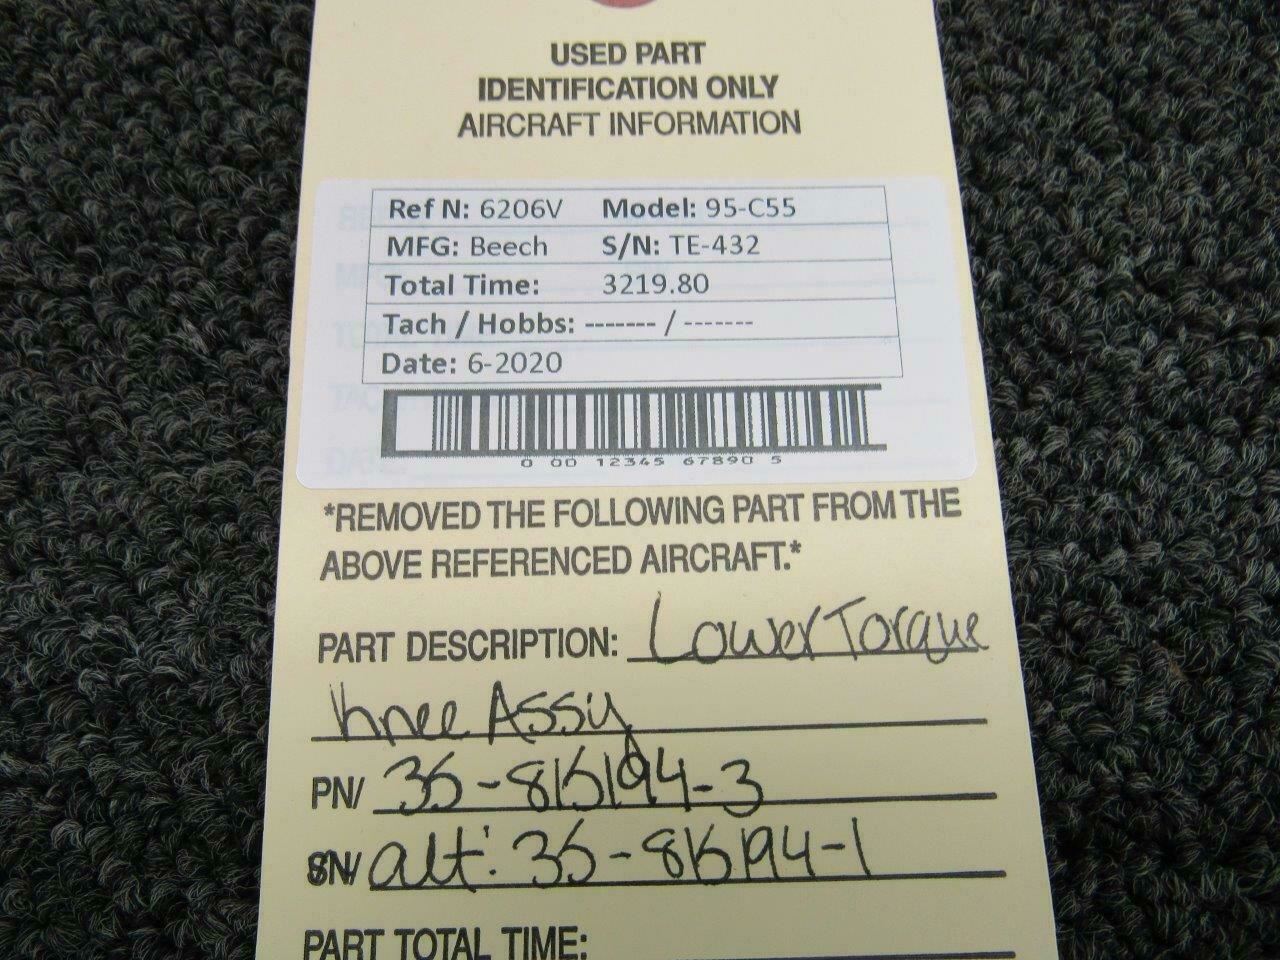 USED PART
IDENTIFICATION ONLY
AIRCRAFT INFORMATION
Ref N: 6206V Model: 95-C55
MFG: Beech S/N: TE-432
Total Time: 3219.80
Tach / Hobbs: ------- / -------
Date: 6-2020
0 00 12345 67890 5
*REMOVED THE FOLLOWING PART FROM THE
ABOVE REFERENCED AIRCRAFT.*
PART DESCRIPTION: Lower Torque
Knee Assy
PN/ 35-815194-3
SN/ alt: 35-815194-1
PART TOTAL TIME: